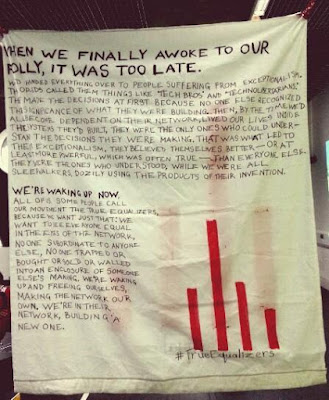 WHEN WE FINALLY AWOKE TO OUR
FOLLY, IT WAS TOO LATE.
WE'D HANDED EVERYTHING OVER TO PEOPLE SUFFERING FROM EXCEPTIONALISM.
THE OLDS CALLED THEM THINGS LIKE "TECH BROS" AND "TECHNOLIBERTARIANS."
THEY MADE THE DECISIONS AT FIRST BECAUSE NO ONE ELSE RECOGNIZED
THE SIGNIFICANCE OF WHAT THEY WERE BUILDING. THEN, BY THE TIME WE'D
ALL BECOME DEPENDENT ON THEIR NETWORK, LIVED OUR LIVES INSIDE
THE SYSTEMS THEY'D BUILT, THEY WERE THE ONLY ONES WHO COULD UNDER-
STAND THE DECISIONS THEY WERE MAKING. THAT WAS WHAT LED TO
THEIR EXCEPTIONALISM, THEY BELIEVED THEMSELVES BETTER—OR AT
LEAST MORE POWERFUL, WHICH WAS OFTEN TRUE—THAN EVERYONE ELSE.
THEY WERE THE ONES WHO UNDERSTOOD, WHILE WE WERE ALL
SLEEPWALKERS, DOZILY USING THE PRODUCTS OF THEIR INVENTION.
WE'RE WAKING UP NOW.
ALL OF US. SOME PEOPLE CALL
OUR MOVEMENT THE TRUE EQUALIZERS,
BECAUSE WE WANT JUST THAT: WE
WANT TO BE EVERYONE EQUAL
IN THE EYES OF THE NETWORK,
NO ONE SUBORDINATE TO ANYONE
ELSE, NO ONE TRAPPED OR
BOUGHT OR SOLD OR WALLED
INTO AN ENCLOSURE OF SOMEONE
ELSE'S MAKING. WE'RE WAKING
UP AND FREEING OURSELVES,
MAKING THE NETWORK OUR
OWN. WE'RE IN THEIR
NETWORK, BUILDING A
NEW ONE.
#TrueEqualizers